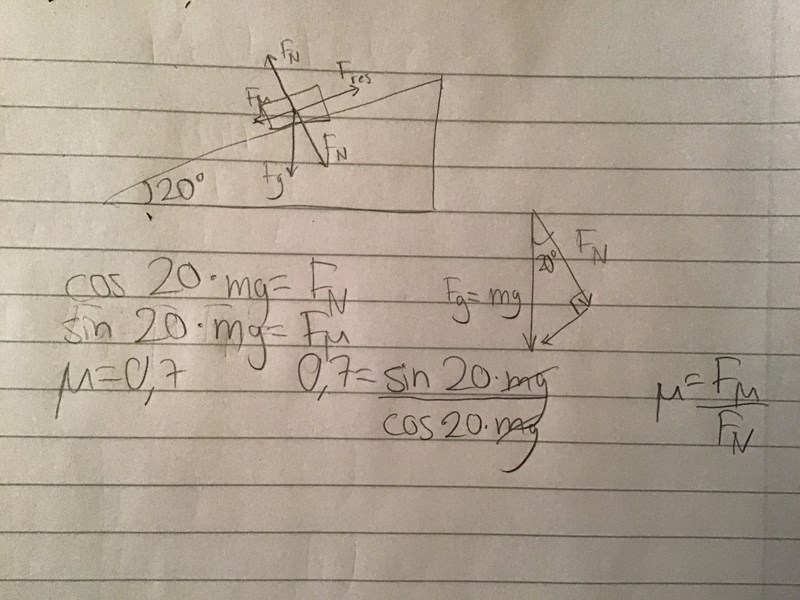 F_N
F_res
F_μ
F_N
F_g
20°
F_N
20°
F_g = mg
cos 20·mg = F_N
sin 20·mg = F_μ
μ = 0,7
0,7 = sin 20·mg / cos 20·mg
μ = F_μ / F_N